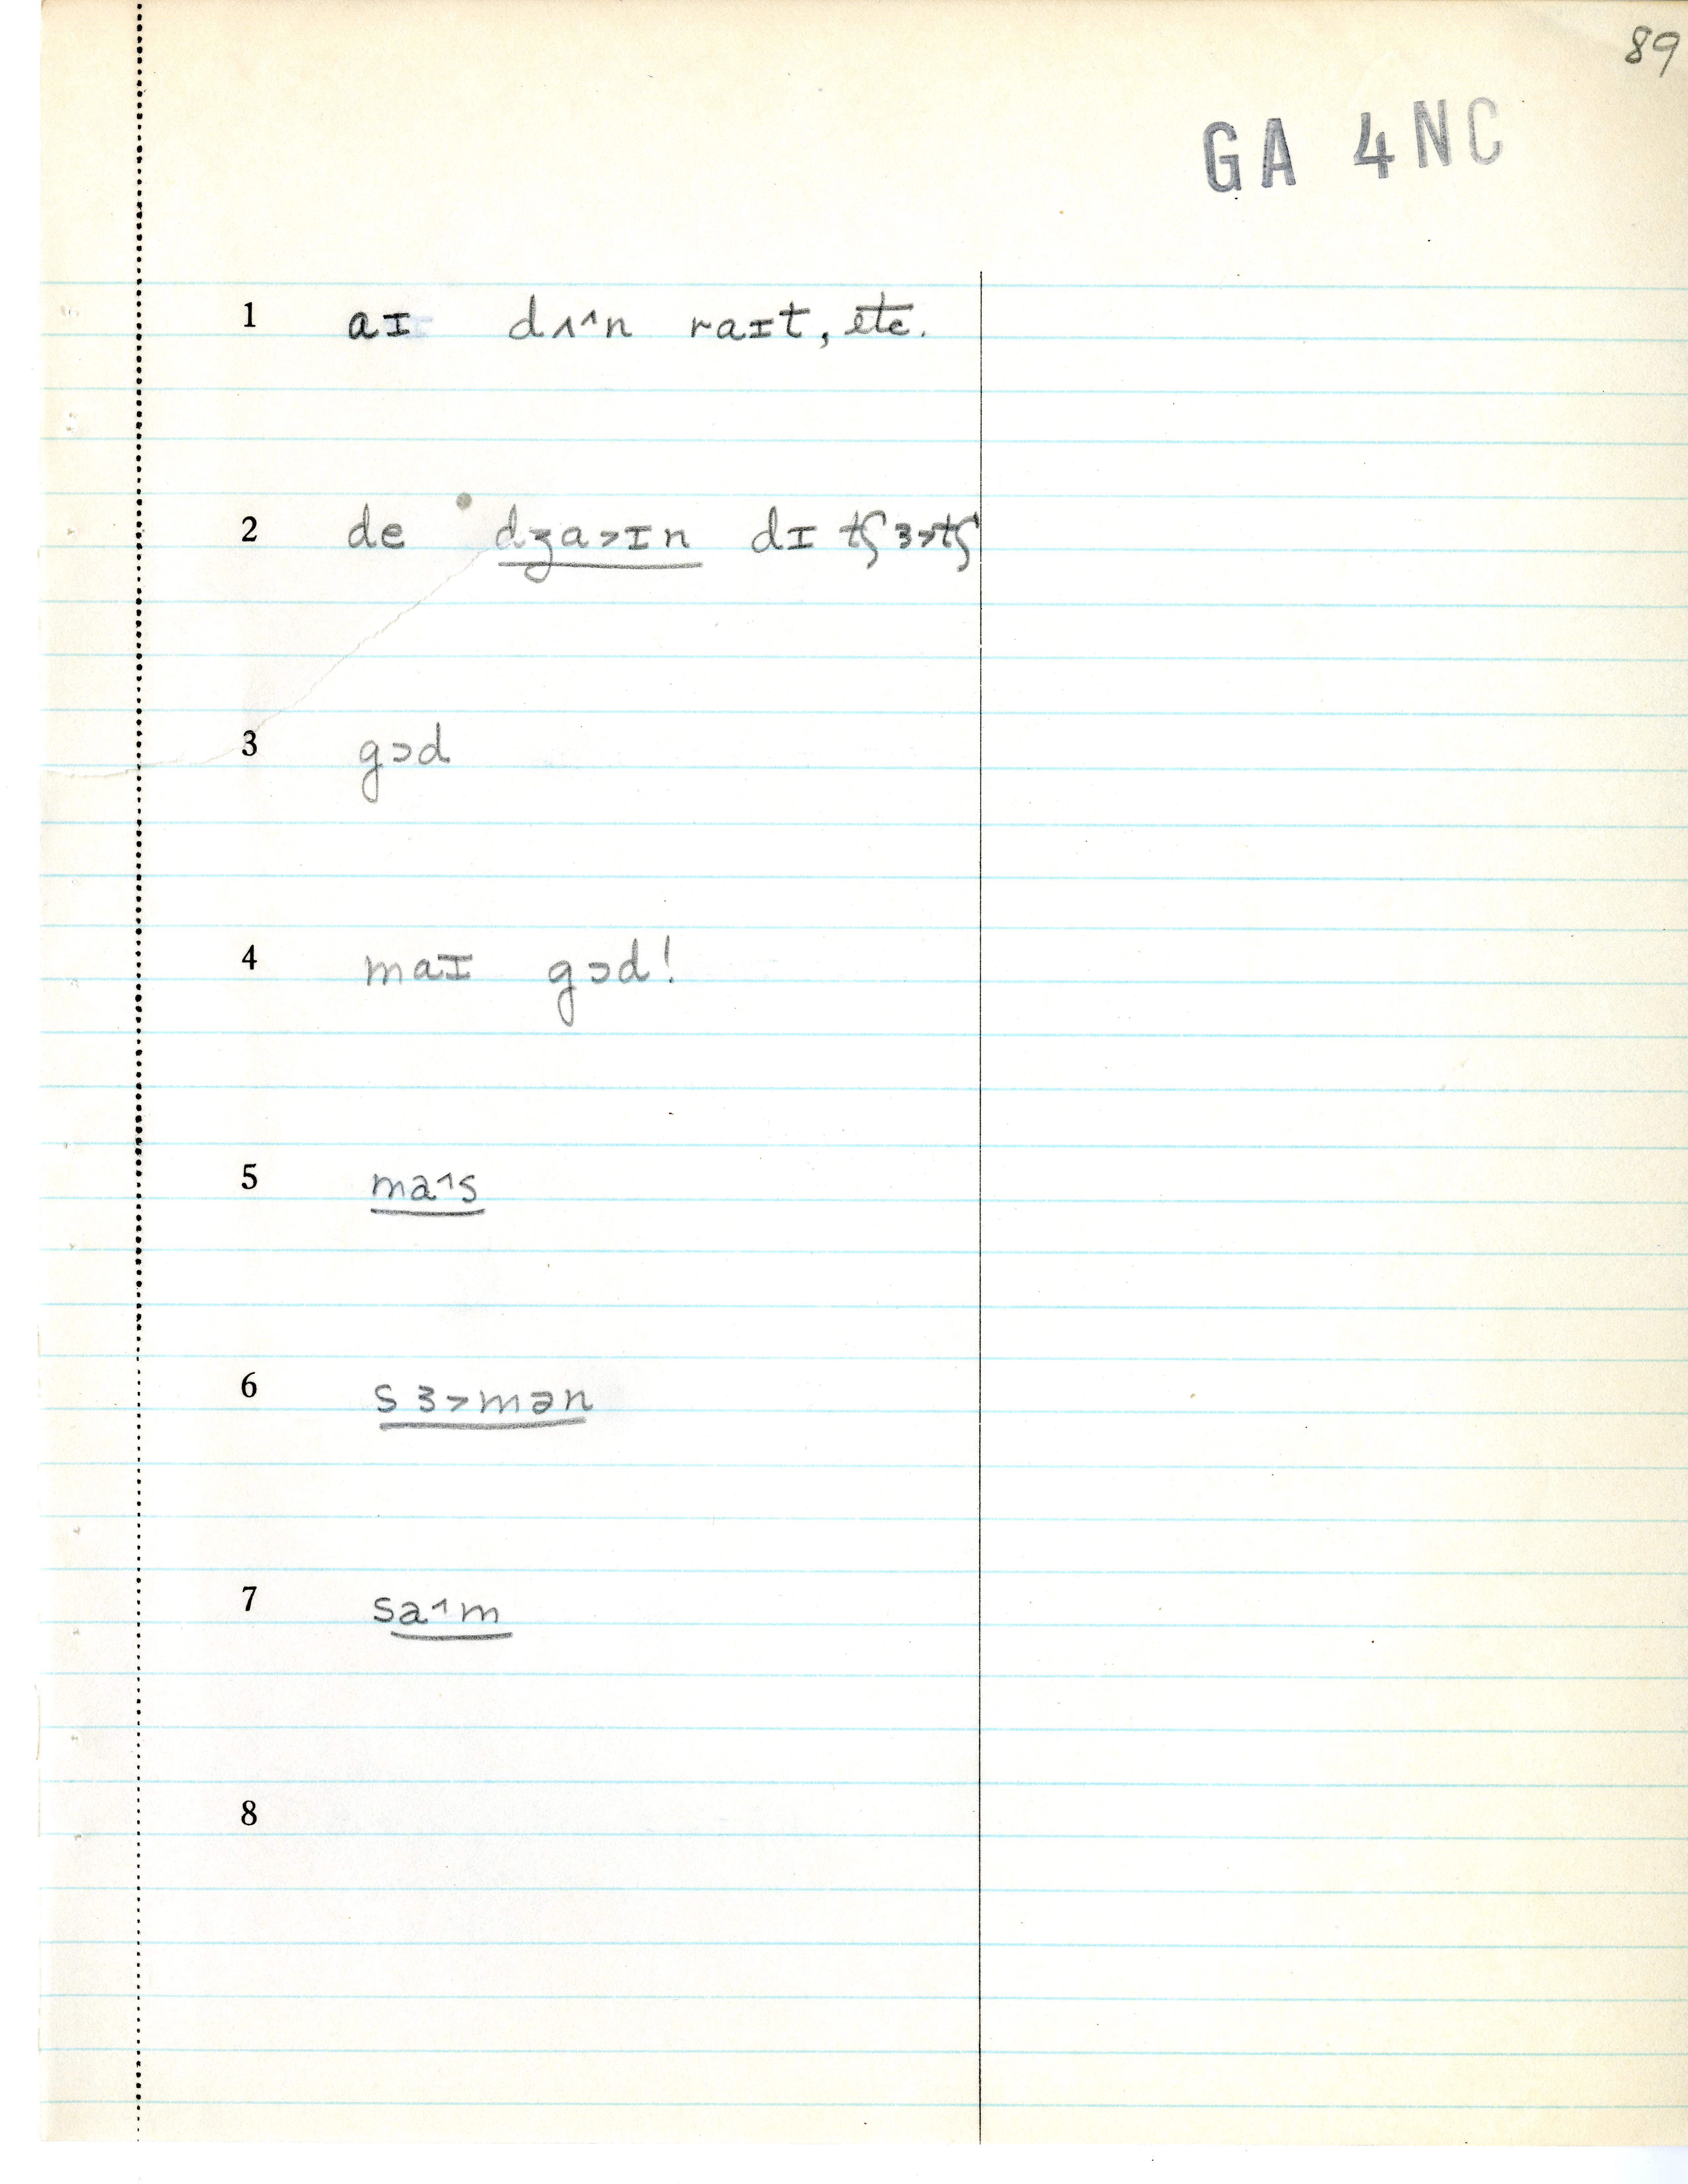 89
GA 4NC
1 aɪ dʌ^n raɪt, etc.
2 de dʒa>ɪn dɪ tʃɜ>tʃ
3 gɔd
4 maɪ gɔd!
5 ma^s
6 sɜ>mən
7 sa^m
8